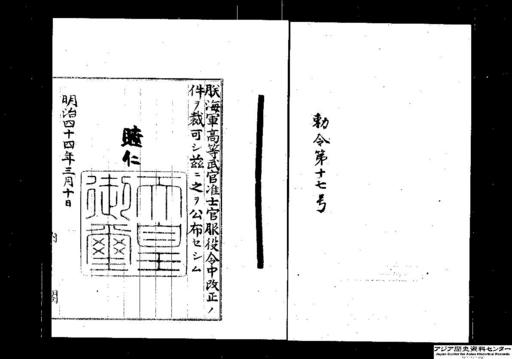 勅令第十七号
朕海軍高等武官准士官服役令中改正ノ
件ヲ裁可シ茲ニ之ヲ公布セシム
睦仁
天皇御璽
明治四十四年三月十日
内閣
アジア歴史資料センター
Japan Center for Asian Historical Records